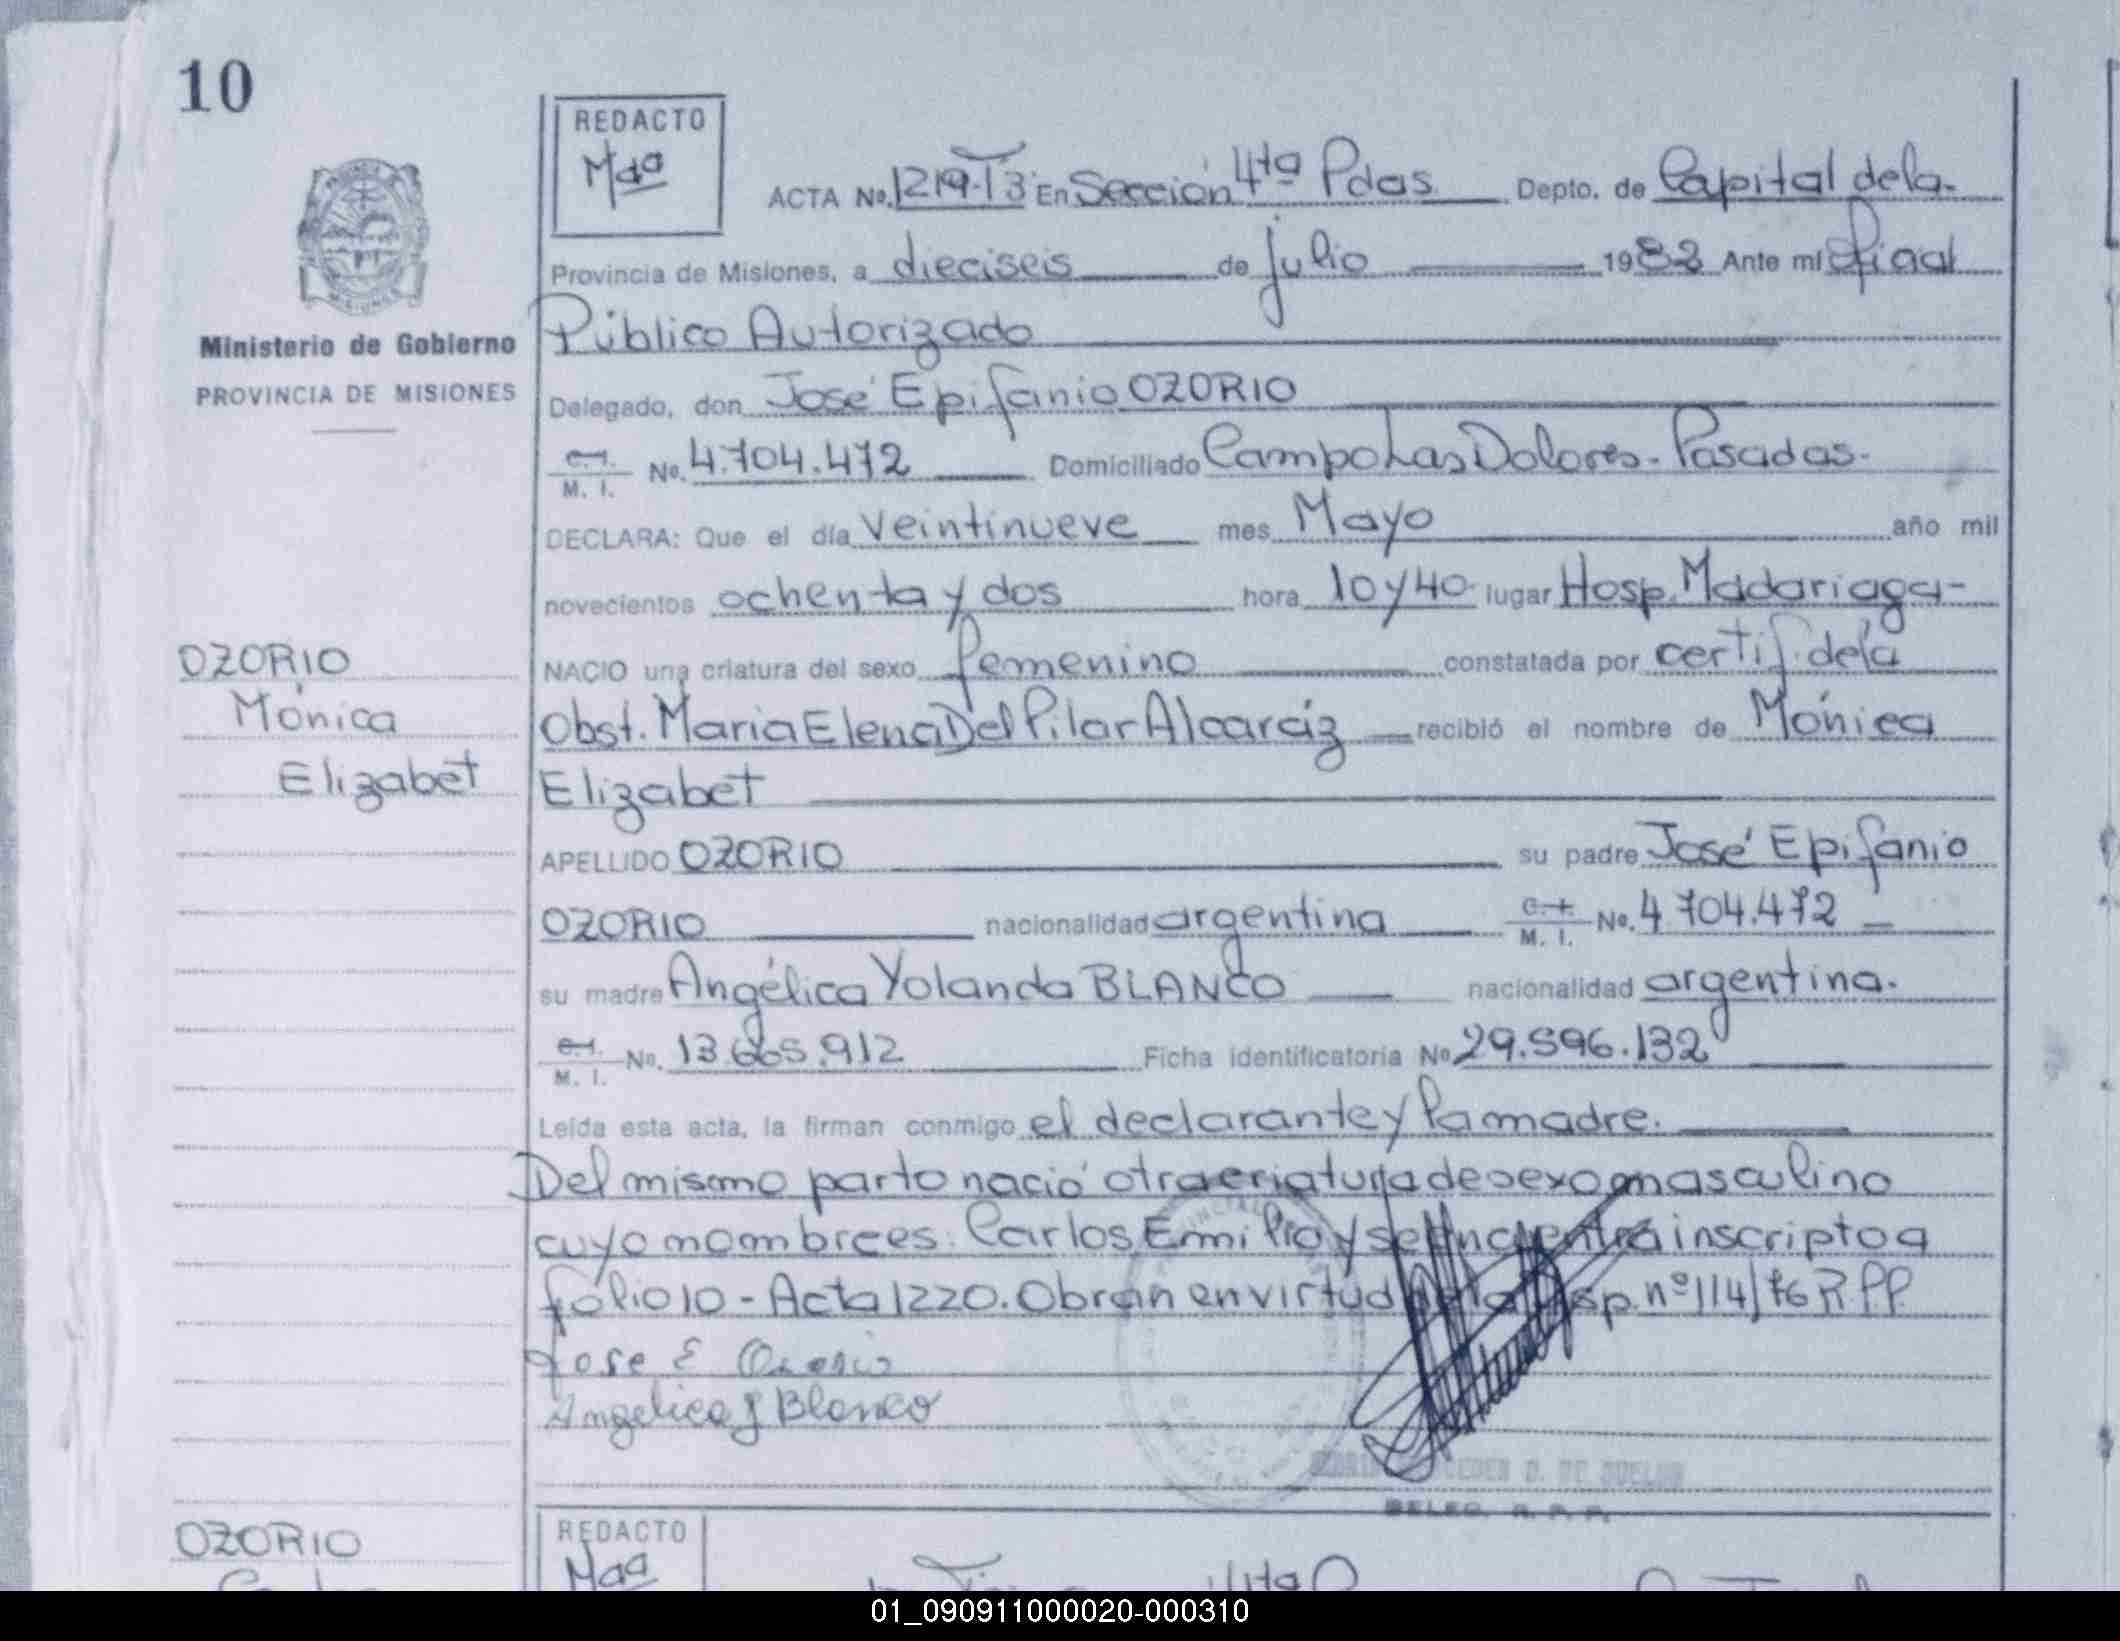 10
REDACTO
Mda
ACTA No. 1219-T3 En Sección 4ta Pdas. Depto. de Capital de la-
Provincia de Misiones, a dieciseis de julio 1982 Ante mí Oficial
Público Autorizado
Ministerio de Gobierno
PROVINCIA DE MISIONES
Delegado, don José Epifanio OZORIO
C.I. M. I. No. 4.704.472 Domiciliado Campo Las Dolores - Posadas-
DECLARA: Que el día veintinueve mes Mayo año mil
novecientos ochenta y dos hora 10 y 40 lugar Hosp. Madariaga-
NACIO una criatura del sexo femenino constatada por certif. de la
Obst. Maria Elena Del Pilar Alcaráz recibió el nombre de Mónica
Elizabet
OZORIO
Mónica
Elizabet
APELLIDO OZORIO su padre José Epifanio
OZORIO nacionalidad argentina C.I. M. I. No. 4.704.472
su madre Angélica Yolanda BLANCO nacionalidad argentina.
C.I. M. I. No. 13.665.912 Ficha identificatoria No 29.596.132
Leída esta acta, la firman conmigo el declarante y la madre.
Del mismo parto nació otra criatura de sexo masculino
cuyo nombre es: Carlos Emilio y se encuentra inscripto a
folio 10 - Acta 1220. Obran en virtud de la Disp. nº 114/76 R.P.P.
Jose E Ozorio
Angelica Y Blanco
DELEG. R. P. P.
OZORIO
REDACTO
Mda
01_090911000020-000310